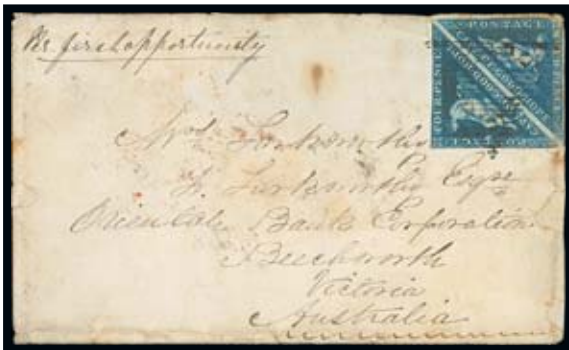 Per first opportunity
POSTAGE
CAPE OF GOOD HOPE
FOUR PENCE
POSTAGE
Mrs
Esqre
Oriental Bank Corporation
Beechworth
Victoria
Australia